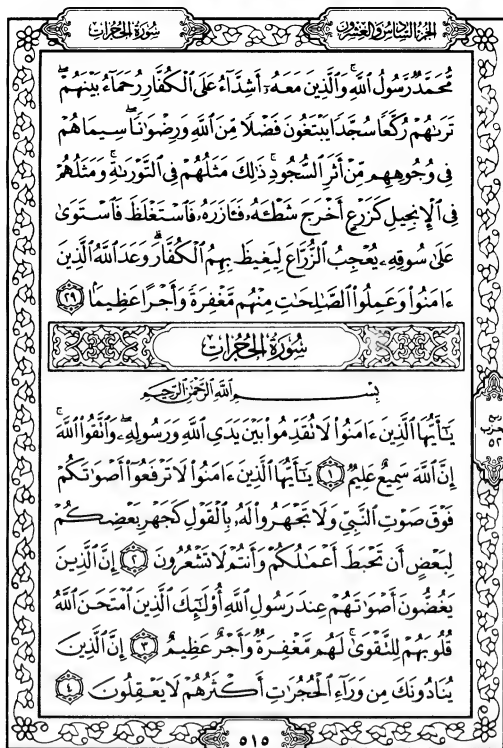 سُورَةُ الحُجُرَاتِ
الجُزءُ السَّادِسُ وَالعِشْرُونَ
مُّحَمَّدٌ رَّسُولُ ٱللَّهِۚ وَٱلَّذِينَ مَعَهُۥٓ أَشِدَّآءُ عَلَى ٱلۡكُفَّارِ رُحَمَآءُ بَيۡنَهُمۡۖ
تَرَىٰهُمۡ رُكَّعٗا سُجَّدٗا يَبۡتَغُونَ فَضۡلٗا مِّنَ ٱللَّهِ وَرِضۡوَٰنٗاۖ سِيمَاهُمۡ
فِي وُجُوهِهِم مِّنۡ أَثَرِ ٱلسُّجُودِۚ ذَٰلِكَ مَثَلُهُمۡ فِي ٱلتَّوۡرَىٰةِۚ وَمَثَلُهُمۡ
فِي ٱلۡإِنجِيلِ كَزَرۡعٍ أَخۡرَجَ شَطۡـَٔهُۥ فَـَٔازَرَهُۥ فَٱسۡتَغۡلَظَ فَٱسۡتَوَىٰ
عَلَىٰ سُوقِهِۦ يُعۡجِبُ ٱلزُّرَّاعَ لِيَغِيظَ بِهِمُ ٱلۡكُفَّارَۗ وَعَدَ ٱللَّهُ ٱلَّذِينَ
ءَامَنُواْ وَعَمِلُواْ ٱلصَّٰلِحَٰتِ مِنۡهُم مَّغۡفِرَةٗ وَأَجۡرًا عَظِيمَۢا ٢٩
سُورَةُ الحُجُرَاتِ
بِسۡمِ ٱللَّهِ ٱلرَّحۡمَٰنِ ٱلرَّحِيمِ
يَٰٓأَيُّهَا ٱلَّذِينَ ءَامَنُواْ لَا تُقَدِّمُواْ بَيۡنَ يَدَيِ ٱللَّهِ وَرَسُولِهِۦۖ وَٱتَّقُواْ ٱللَّهَۚ
إِنَّ ٱللَّهَ سَمِيعٌ عَلِيمٞ ١ يَٰٓأَيُّهَا ٱلَّذِينَ ءَامَنُواْ لَا تَرۡفَعُوٓاْ أَصۡوَٰتَكُمۡ
فَوۡقَ صَوۡتِ ٱلنَّبِيِّ وَلَا تَجۡهَرُواْ لَهُۥ بِٱلۡقَوۡلِ كَجَهۡرِ بَعۡضِكُمۡ
لِبَعۡضٍ أَن تَحۡبَطَ أَعۡمَٰلُكُمۡ وَأَنتُمۡ لَا تَشۡعُرُونَ ٢ إِنَّ ٱلَّذِينَ
يَغُضُّونَ أَصۡوَٰتَهُمۡ عِندَ رَسُولِ ٱللَّهِ أُوْلَٰٓئِكَ ٱلَّذِينَ ٱمۡتَحَنَ ٱللَّهُ
قُلُوبَهُمۡ لِلتَّقۡوَىٰۚ لَهُم مَّغۡفِرَةٞ وَأَجۡرٌ عَظِيمٌ ٣ إِنَّ ٱلَّذِينَ
يُنَادُونَكَ مِن وَرَآءِ ٱلۡحُجُرَٰتِ أَكۡثَرُهُمۡ لَا يَعۡقِلُونَ ٤
٥٢
٥١٥